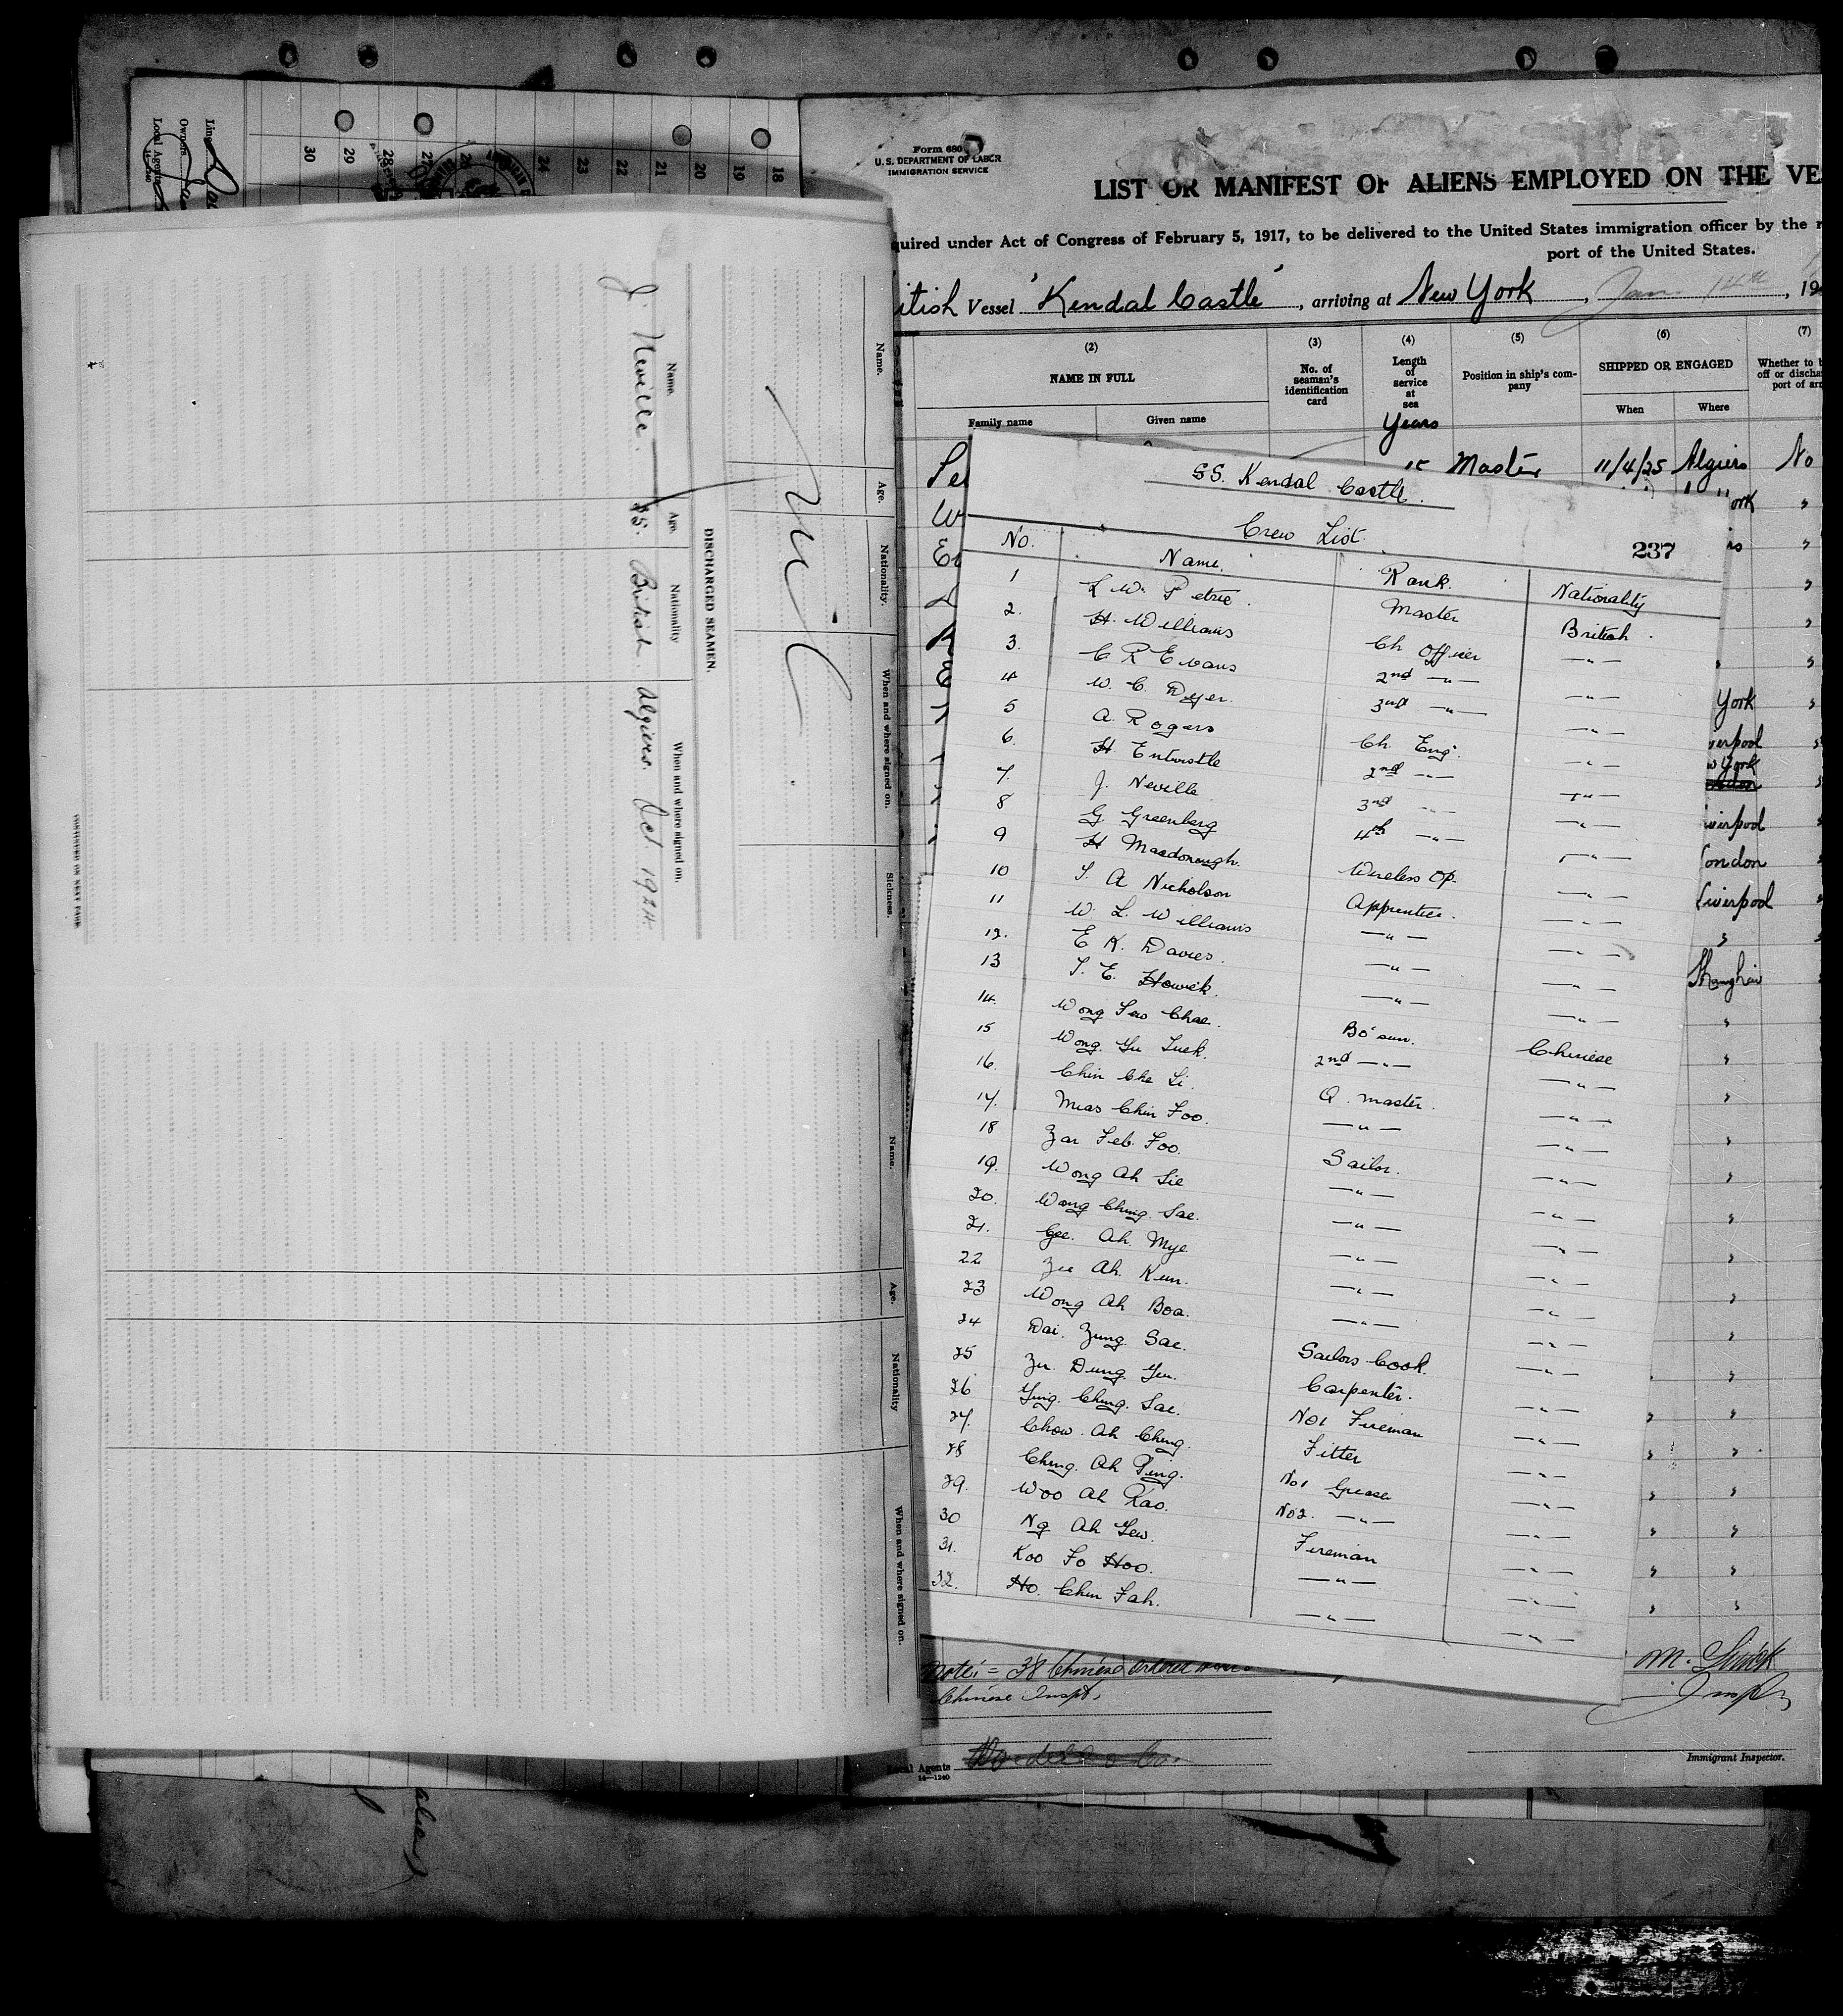 Form 680
U. S. DEPARTMENT OF LABOR
IMMIGRATION SERVICE
LIST OR MANIFEST OF ALIENS EMPLOYED ON THE VE
quired under Act of Congress of February 5, 1917, to be delivered to the United States immigration officer by the r
port of the United States.
itish Vessel "Kendal Castle", arriving at New York, Jan 14th, 19
(2) (3) (4) (5) (6) (7)
NAME IN FULL
Family name Given name
No. of seaman's identification card
Length of service at sea
Years
Position in ship's company
SHIPPED OR ENGAGED
When Where
Whether to
off or discha
port of arr
15 Master 11/4/25 Algiers No
ork
York
verpool
w York
verpool
London
Liverpool
Shanghai
SS. Kendal Castle.
Crew List.
237
No. Name. Rank. Nationality
1 L W. Petrie. Master British.
2. H. Williams Ch Officer —"—
3. C R Evans 2nd —"— —"—
4 W. C. Dyer. 3rd —"— —"—
5 A. Rogers Ch. Eng. —"—
6. H Entwistle 2nd —"— —"—
7. J. Neville 3rd —"— —"—
8 G Greenberg 4th —"— —"—
9 H Macdonough. Wireless Op. —"—
10 T. A Nicholson Apprentice. —"—
11 W. L. Williams —"— —"—
12. E K. Davies. —"— —"—
13 T. E. Howick. —"— —"—
14. Wong Sew Chae. Bo'sun. Chinese
15 Wong. Yu Tuck. 2nd —"— —"—
16. Chin Che Li. Q. master. —"—
17. Meas Chin Foo. —"— —"—
18 Zar Feb. Foo. Sailor. —"—
19. Wong Ah Sie —"— —"—
20. Wong Ching. Sae. —"— —"—
21. Gee. Ah. Mye —"— —"—
22 Zee Ah. Kun. —"— —"—
23 Wong Ah Boa. —"— —"—
24 Dai. Zung. Sae. Sailors Cook. —"—
25 Zu. Dung Yeu. Carpenter. —"—
26 Yung. Chung. Sae. No1 Fireman —"—
27. Chow. Ah Ching. Fitter —"—
28 Ching. Ah Ping. No1 Greaser —"—
29. Woo Ah Kao. No2. —"— —"—
30 Ng Ah Yew. Fireman —"—
31. Koo Fo Hoo. —"— —"—
32. Ho. Chin Fah. —"— —"—
Note: = 38 Chinese ordered
Chinese Inspt,
Local Agents
14—1240
Immigrant Inspector.
Name. Age. Nationality. When and where signed on. Sickness.
Nil
DISCHARGED SEAMEN.
Name. Age. Nationality When and where signed on.
J. Neville. 25. British. Algiers. Oct 1924
CONTINUED ON NEXT PAGE
Name. Age. Nationality When and where signed on.
Line
Owners
Local Agents
14—1240
30 29 28 27 26 24 23 22 21 20 19 18